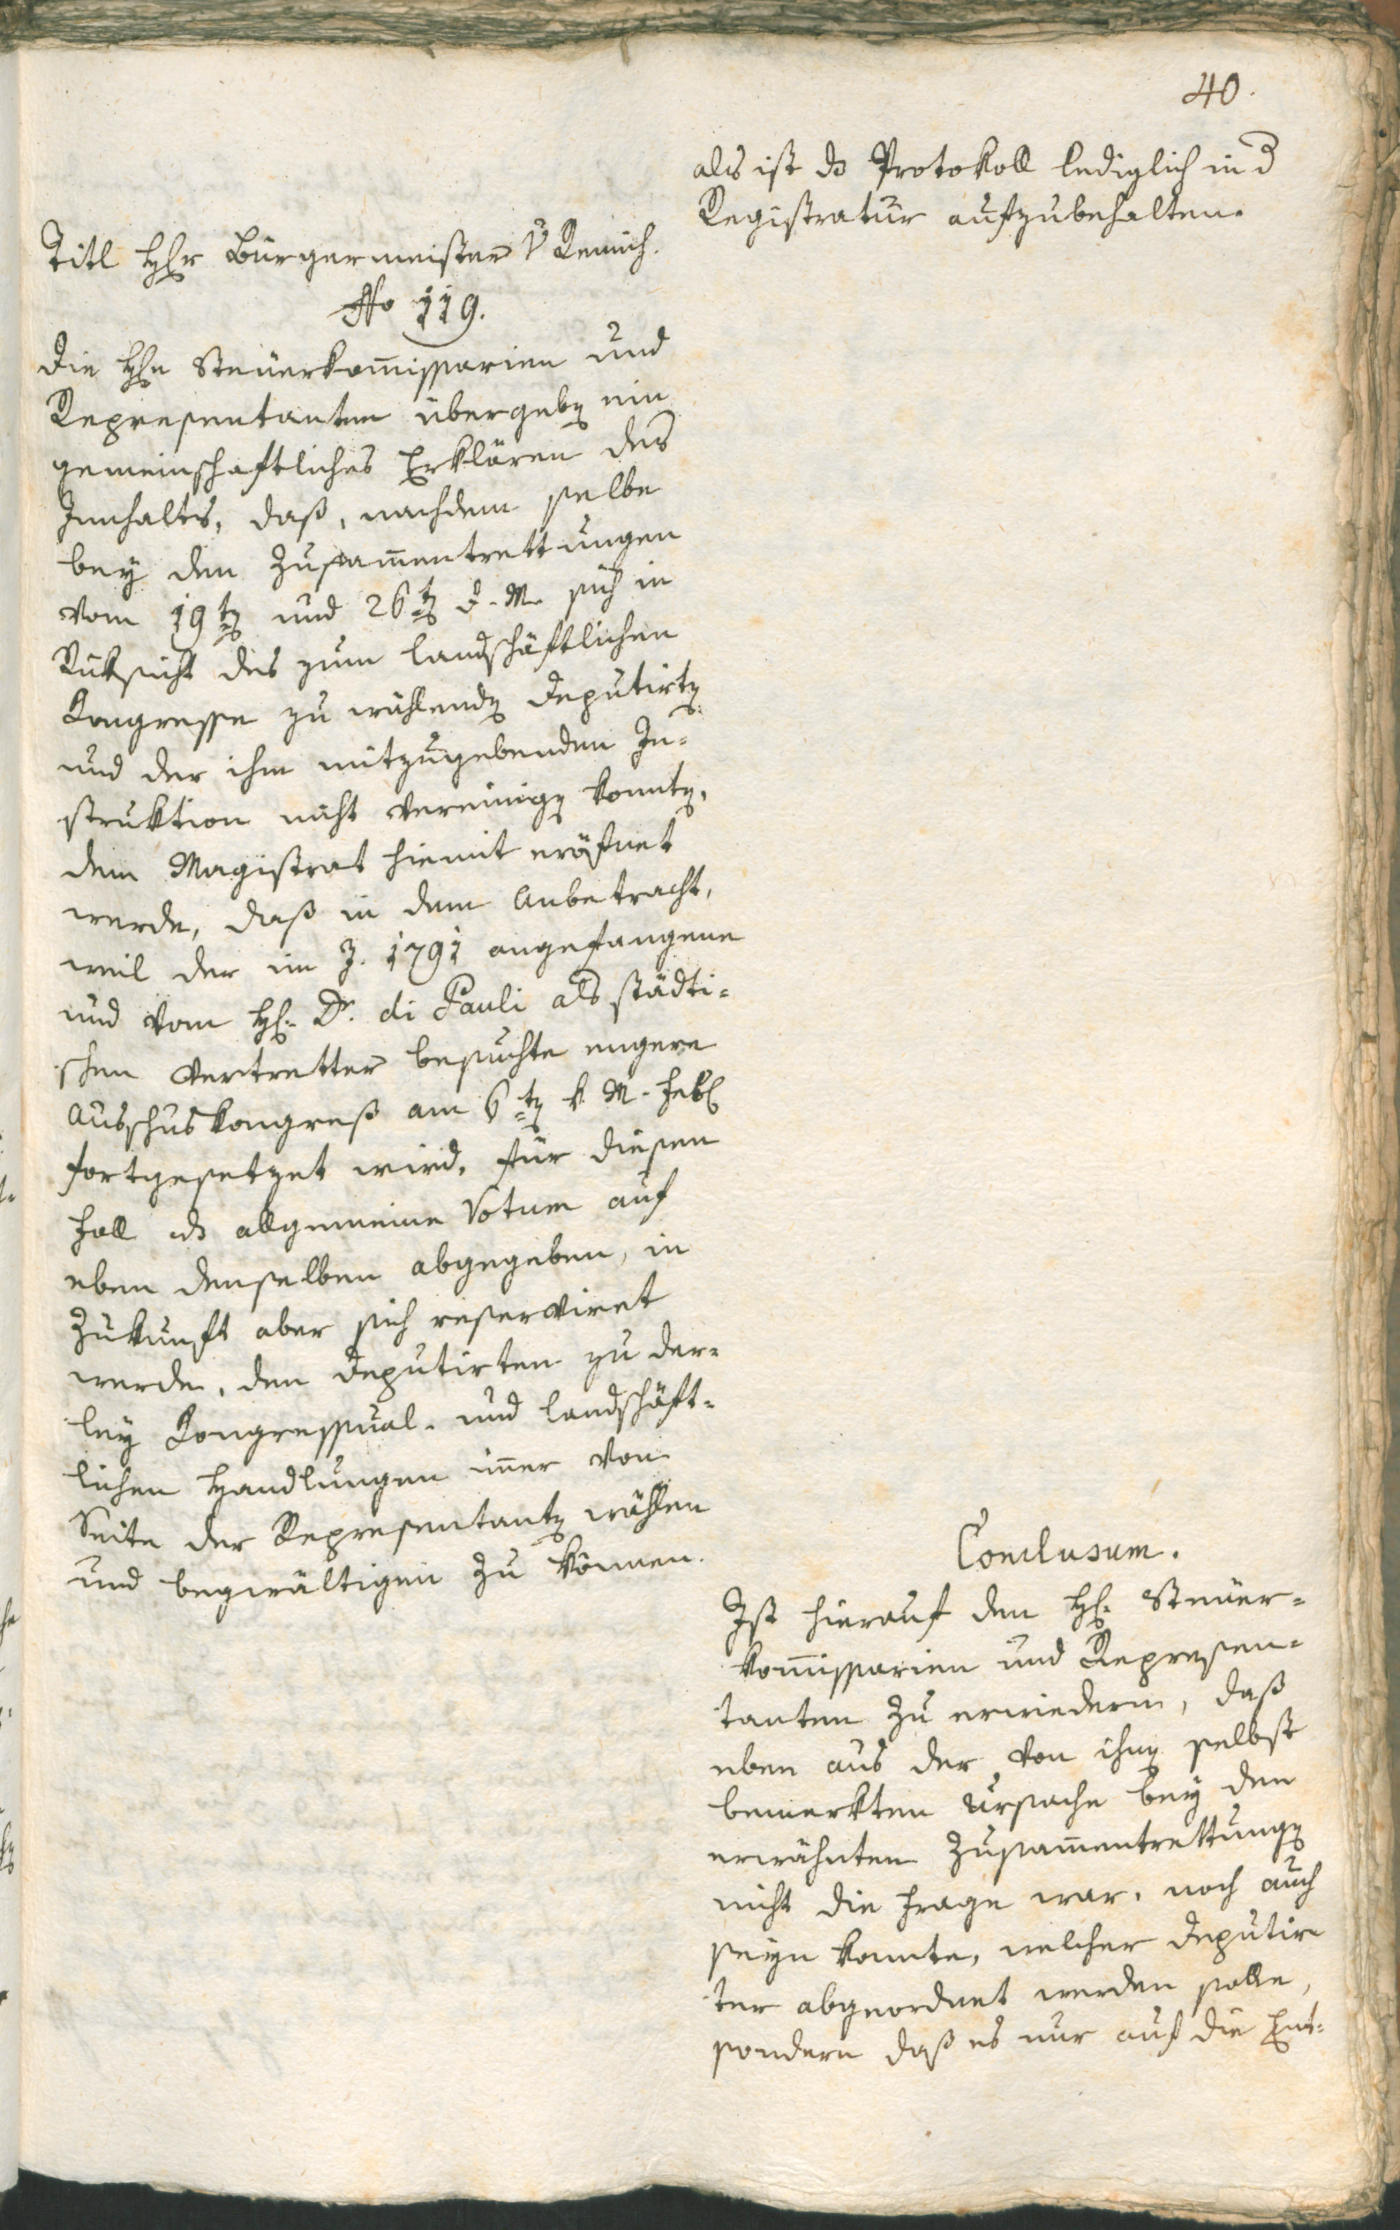 40.
als ist ds Protokoll lediglich in d
Registratur aufzubehalten.
Titl Hr Bürgermeister v Remich.
No 119.
Die Hn Steuerkom̄issarien und
Representanten übergeben ein
gemeinschaftliches Erklären des
Innhalts, daß, nachdem selbe
bey den Zusam̄entrettungen
vom 19ten und 26ten d. M. sich in
Rüksicht des zum landschäftlichen
Kongresse zu wählenden Deputirten
und der ihm mitzugebenden In-
struktion nicht vereinigen konnten,
dem Magistrat hiemit eröfnet
werde, daß in dem Anbetracht,
weil der im J. 1791 angefangene
und vom H. Dr. di Pauli als städti-
schen Vertretter besuchte engere
Ausschuskongreß am 6ten k. M. Feb
fortgesetzet wird, für diesen
Fall ds allgemeine Votum auf
eben denselben abgegeben, in
Zukunft aber sich reserviret
werde, den Deputirten zu der-
ley Kongressual- und landschäft-
lichen Handlungen im̄er von
Seite der Representanten wählen
und begwältigen zu können.
Conclusum.
Ist hierauf den H. Steuer-
kom̄issarien und Represen-
tanten zu erwiedern, daß
eben aus der von ihnen selbst
bemerkten Ursache bey den
erwähnten Zusam̄entrettungen
nicht die Frage war, noch auch
seyn konnte, welcher Deputir-
ter abgeordnet werden solle,
sondern daß es nur auf die Ent-